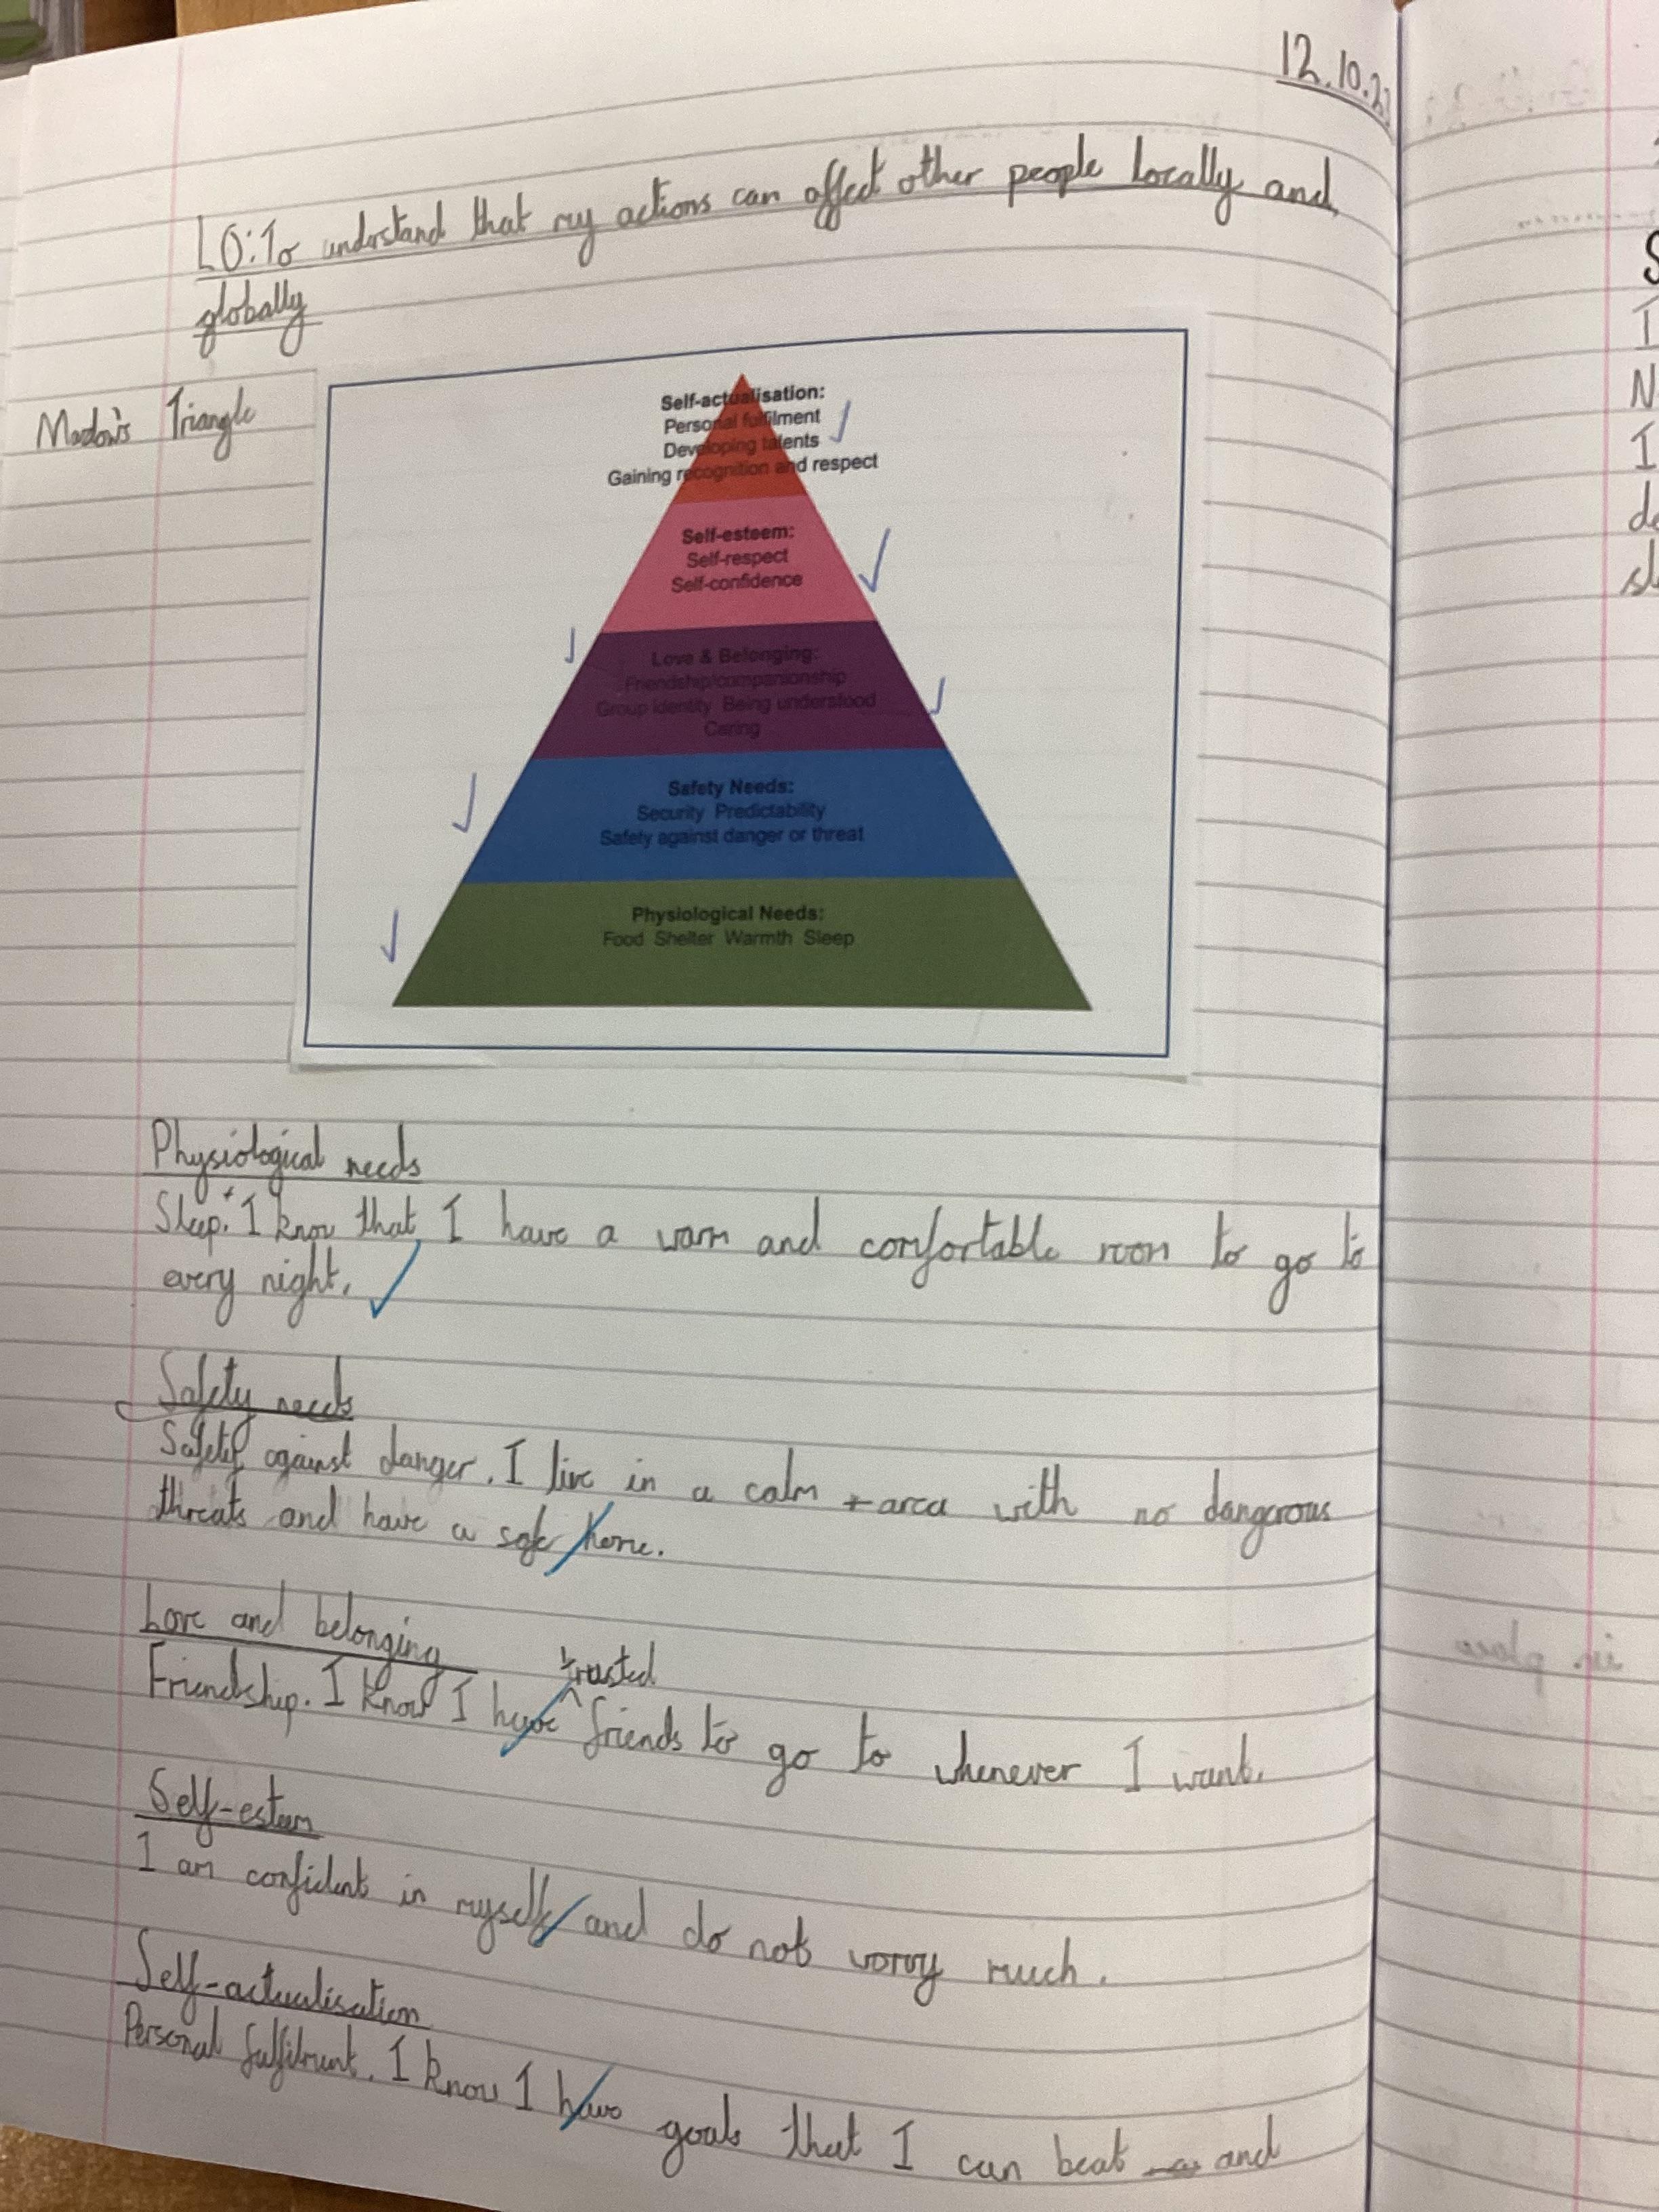 12.10.2
LO: To understand that my actions can affect other people locally and
globally
Maslow's Triangle
Self-actualisation:
Personal fulfilment
Developing talents
Gaining recognition and respect
Self-esteem:
Self-respect
Self-confidence
Love & Belonging:
Friendship/companionship
Group identity Being understood
Caring
Safety Needs:
Security Predictability
Safety against danger or threat
Physiological Needs:
Food Shelter Warmth Sleep
Physiological needs
Sleep. I know that I have a warm and comfortable room to go to
every night.
Safety needs
Safety against danger. I live in a calm area with no dangerous
threats and have a safe home.
Love and belonging
Friendship. I know I have trusted friends to go to whenever I want.
Self-esteem
I am confident in myself and do not worry much.
Self-actualisation
Personal fulfilment. I know I have goals that I can beat and
S
I
N
I
de
sl
in place